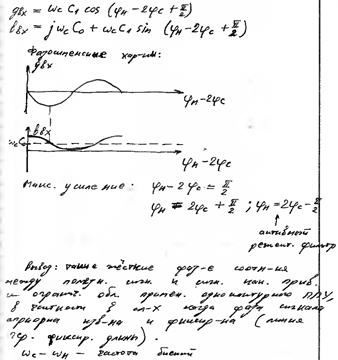 gвх = ωc C1 cos (φн-2φc + π/2)
bвх = jωc C0 + ωc C1 sin (φн-2φc + π/2)
Фазошенские хар-ки:
gвх
φн-2φc
bвх
ωcC
φн-2φc
Макс. усиление: φн-2φc = π/2
φн = 2φc + π/2 ; φн = 2φc - π/2
активный
фильтр
Вывод: такие жёсткие фаз-е соотн-ия
между сигн. и сигн. нак. прив.
к огранич. обл. примен. одноконтурного ППУ,
в частности в когда фаза сигнала
априорна и фиксир-на (линия
фиксир. длины).
ωc - ωн - частота биений